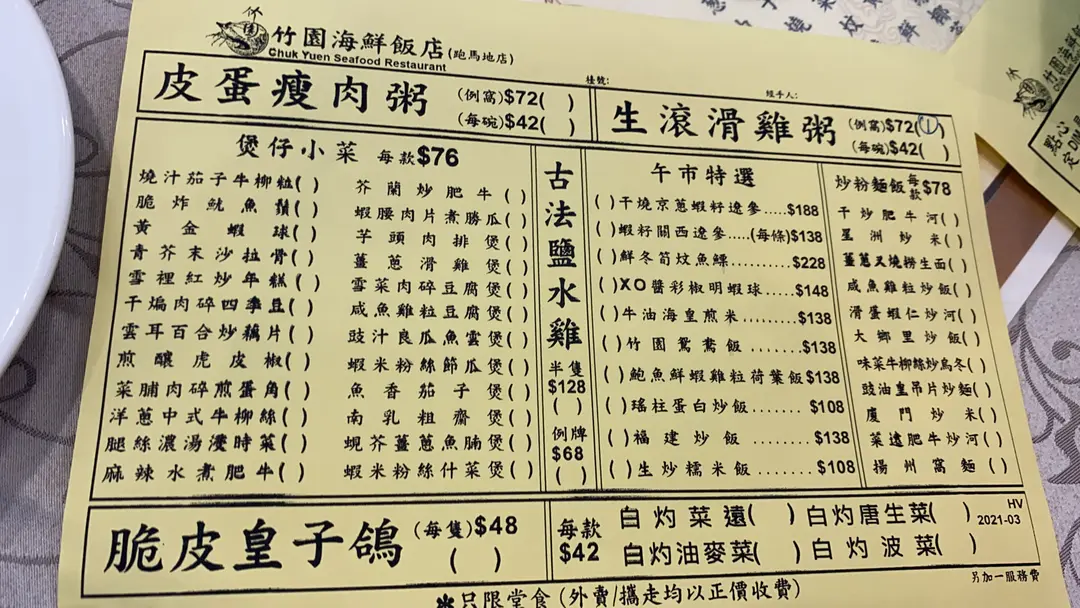 竹園海鮮飯店(跑馬地店)
Chuk Yuen Seafood Restaurant
枱號:
經手人:
皮蛋瘦肉粥
(例窩)$72( )
(每碗)$42( )
生滾滑雞粥
(例窩)$72(1)
(每碗)$42( )
煲仔小菜 每款$76
燒汁茄子牛柳粒( )
脆炸魷魚鬚( )
黃金蝦球( )
青芥末沙拉骨( )
雪裡紅炒年糕( )
干煸肉碎四季豆( )
雲耳百合炒藕片( )
煎釀虎皮椒( )
菜脯肉碎煎蛋角( )
洋蔥中式牛柳絲( )
腿絲濃湯浸時菜( )
麻辣水煮肥牛( )
芥蘭炒肥牛( )
蝦腰肉片煮勝瓜( )
芋頭肉排煲( )
薑蔥滑雞煲( )
雪菜肉碎豆腐煲( )
咸魚雞粒豆腐煲( )
豉汁良瓜魚雲煲( )
蝦米粉絲節瓜煲( )
魚香茄子煲( )
南乳粗齋煲( )
蜆芥薑蔥魚腩煲( )
蝦米粉絲什菜煲( )
古法鹽水雞
半隻
$128
( )
例牌
$68
( )
午市特選
( )干燒京蔥蝦籽遼參.....$188
( )蝦籽關西遼參.....(每條)$138
( )鮮冬筍炆魚鰾...........$228
( )XO醬彩椒明蝦球......$148
( )牛油海皇煎米.........$138
( )竹園鴛鴦飯.......$138
( )鮑魚鮮蝦雞粒荷葉飯$138
( )瑤柱蛋白炒飯.......$108
( )福建炒飯........$138
( )生炒糯米飯........$108
炒粉麵飯每款$78
干炒肥牛河( )
星洲炒米( )
薑蔥叉燒撈生面( )
咸魚雞粒炒飯( )
滑蛋蝦仁炒河( )
大鄉里炒飯( )
味菜牛柳絲炒烏冬( )
豉油皇吊片炒麵( )
廈門炒米( )
菜遠肥牛炒河( )
揚州窩麵( )
脆皮皇子鴿
(每隻)$48
( )
每款
$42
白灼菜遠( )
白灼唐生菜( )
白灼油麥菜( )
白灼波菜( )
HV
2021-03
另加一服務費
※只限堂食(外賣/攜走均以正價收費)